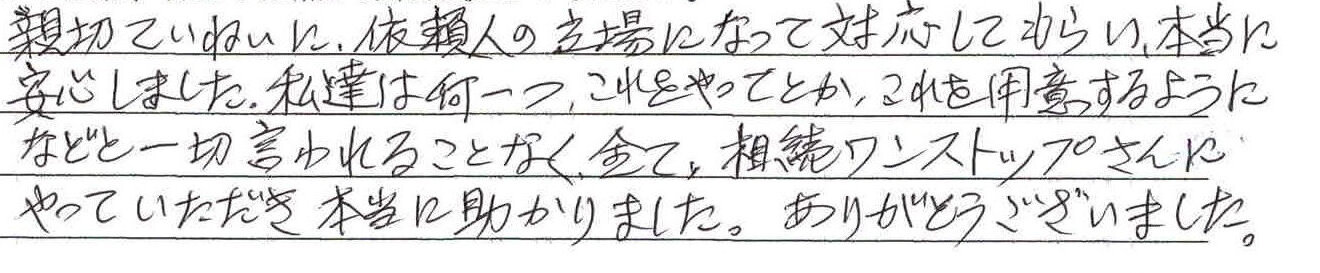 親切ていねいに、依頼人の立場になって対応してもらい、本当に
安心しました。私達は何一つ、これをやってとか、これを用意するように
などと一切言われることなく、全て、相続ワンストップさんに
やっていただき本当に助かりました。ありがとうございました。